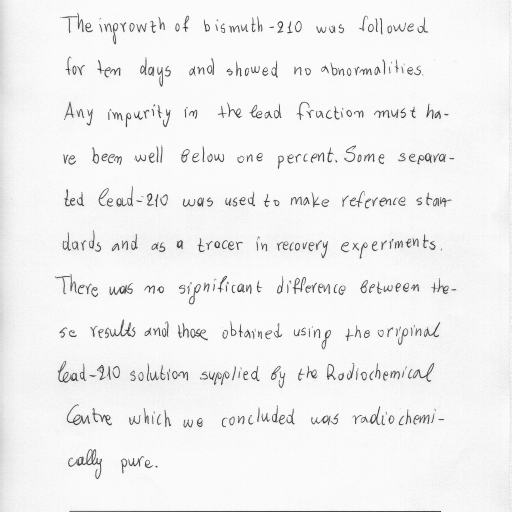 The inprowth of bismuth-210 was followed
for ten days and showed no abnormalities.
Any impurity in the lead fraction must ha-
ve been well below one percent. Some separa-
ted lead-210 was used to make reference stan-
dards and as a tracer in recovery experiments.
There was no significant difference between the-
se results and those obtained using the original
lead-210 solution supplied by the Radiochemical
Centre which we concluded was radiochemi-
cally pure.